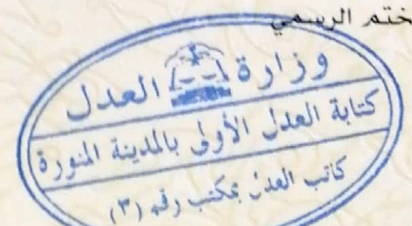 ختم الرسمي
وزارة العدل
كتابة العدل الأولى بالمدينة المنورة
كاتب العدل بمكتب رقم (٣)